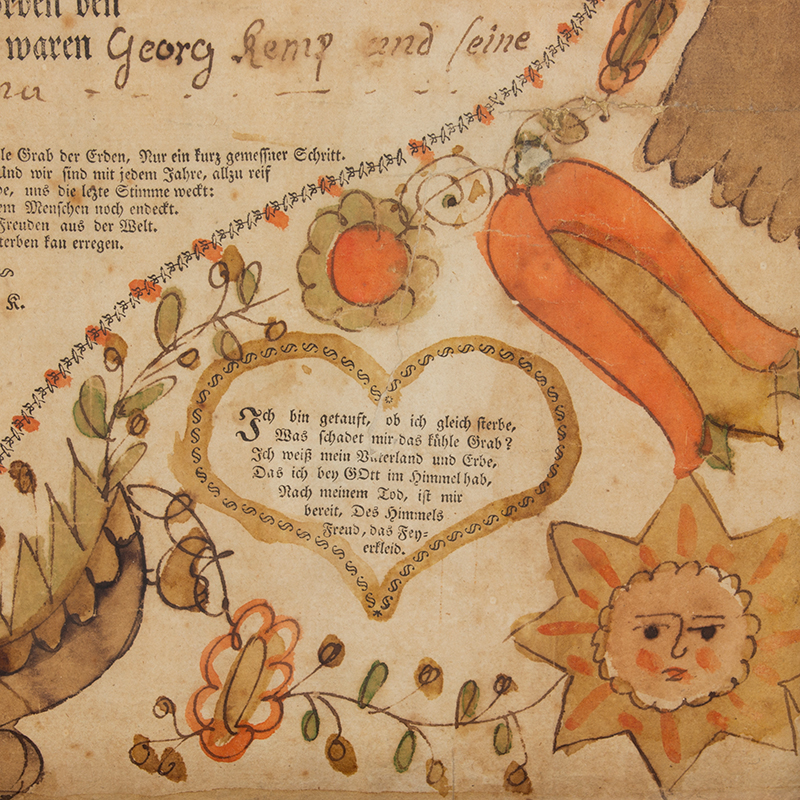 den
waren Georg Kemp und seine
Grab der Erden, Nur ein kurz gemessner Schritt.
Und wir sind mit jedem Jahre, allzu reif
uns die lezte Stimme weckt:
Menschen noch endeckt.
Freuden aus der Welt.
sterben kan erregen.
K.
Ich bin getauft, ob ich gleich sterbe,
Was schadet mir das kühle Grab?
Ich weiß mein Vaterland und Erbe,
Das ich bey GOtt im Himmel hab,
Nach meinem Tod, ist mir
bereit, Des Himmels
Freud, das Fey-
erkleid.